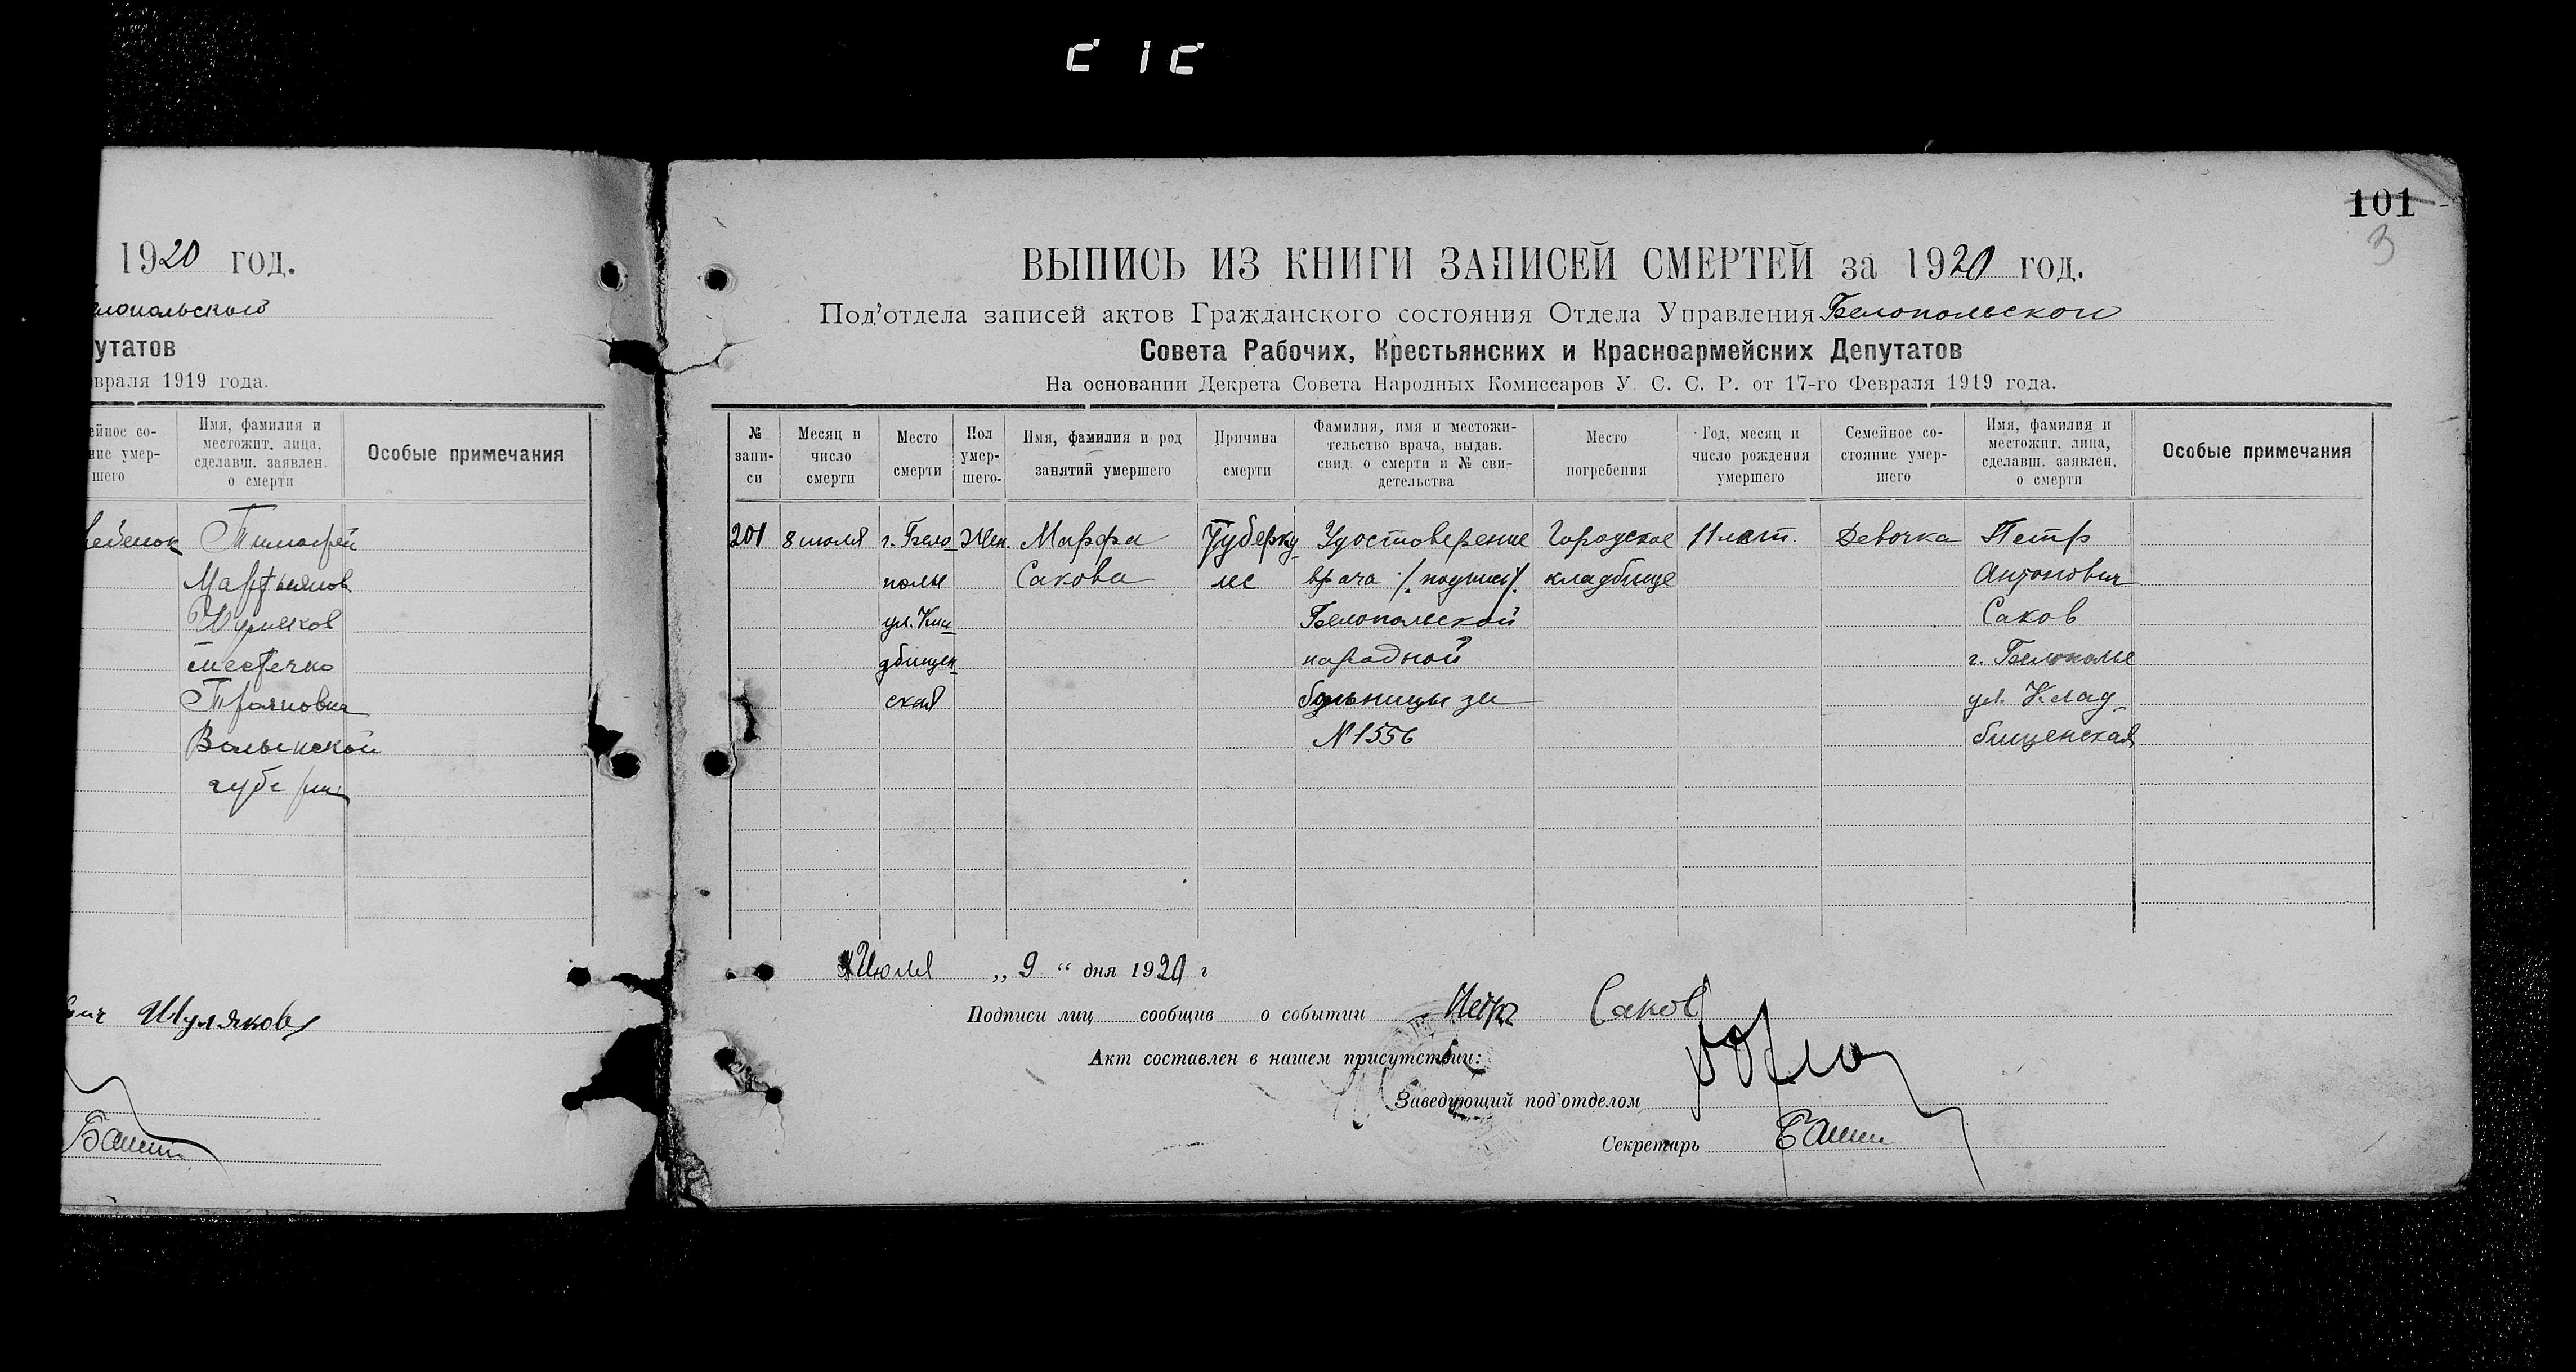 1920 год.
лопольского
путатов
враля 1919 года.
ейное со-
ние умер-
шего
Имя, фамилия и
местожит. лица,
сделавш. заявлен.
о смерти
Особые примечания
Тимофей
Мартьянов
Шуляков
местечко
Трояновка
Волынской
губернии
Шуляков
101
3
ВЫПИСЬ ИЗ КНИГИ ЗАПИСЕЙ СМЕРТЕЙ за 1920 год.
Под'отдела записей актов Гражданского состояния Отдела Управления Белопольского
Совета Рабочих, Крестьянских и Красноармейских Депутатов
На основании Декрета Совета Народных Комиссаров У. С. С. Р. от 17-го Февраля 1919 года.
№
запи-
си
Месяц и
число
смерти
Место
смерти
Пол
умер-
шего
Имя, фамилия и род
занятий умершего
Причина
смерти
Фамилия, имя и местожи-
тельство врача, выдав.
свид. о смерти и № сви-
детельства
Место
погребения
Год, месяц и
число рождения
умершего
Семейное со-
стояние умер-
шего
Имя, фамилия и
местожит. лица,
сделавш. заявлен.
о смерти
Особые примечания
201
8 июля
г. Бело-
полье
ул. Кла
дбищен-
ская
Жен.
Марфа
Сакова
Туберку-
лес
Удостоверение
врача /подпись/.
Белопольской
народной
больницы за
№ 1556
Городское
кладбище
11 лет.
Девочка
Петр
Антонович
Саков
г. Белополье
ул. Клад-
бищенская
Июля „ 9 “ дня 1920 г
Подписи лиц сообщив о событии Петр Саков
Акт составлен в нашем присутствии:
Заведующий под'отделом
Секретарь